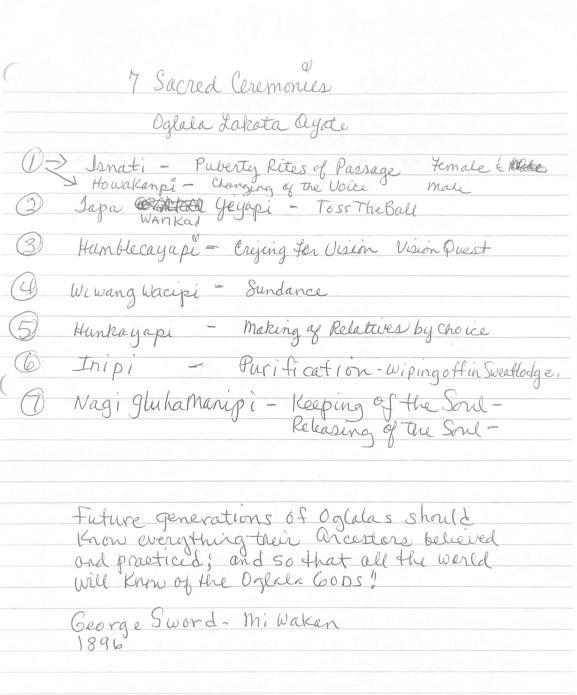 7 Sacred Ceremonies
Oglala Lakota Oyate
① → Isnati - Puberty Rites of Passage Female &
→ Howakanpi - Changing of the Voice male
② Tapa Yeyapi - Toss The Ball
WANKad
③ Humblecayapi - Crying for Vision Vision Quest
④ Wiwang Wacipi - Sundance
⑤ Hunkayapi - Making of Relatives by Choice
⑥ Inipi - Purification - wiping off in Sweatlodge.
⑦ Nagi gluhamanipi - Keeping of the Soul -
Releasing of the Soul -
Future generations of Oglalas should
Know everything their Ancestors believed
and practiced; and so that all the world
will Know of the Oglala GODS!
George Sword - Mi Wakan
1896